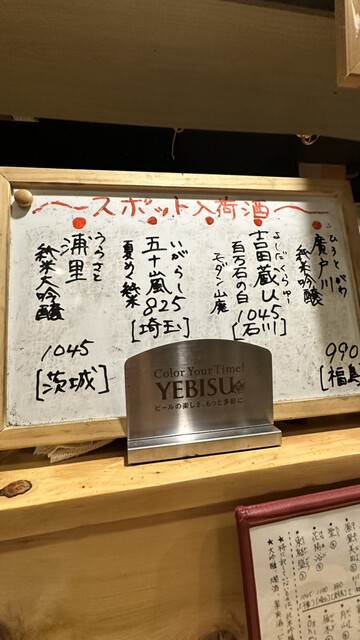 〜スポット入荷酒〜
ひろとがわ
廣戸川
純米吟醸
990
[福島
よしだくらゆー
吉田蔵u
百万石の白
モダン山廃
1045
[石川]
いがらし
五十嵐
夏めく純米
825
[埼玉]
うらざと
浦里
純米大吟醸
1045
[茨城]
Color Your Time!
YEBISU
ビールの楽しさ、もっと多彩に